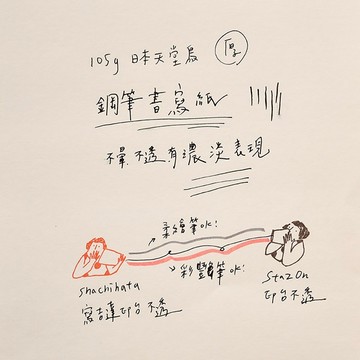 105g 日本天堂鳥 厚
鋼筆書寫紙
不暈.不透.有濃淡表現
柔繪筆OK!
彩豔筆OK!
Shachihata
寫吉達印台不透
StazOn
印台不透